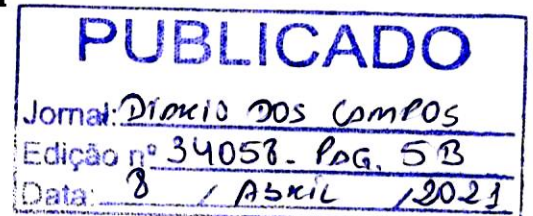 PUBLICADO
Jornal: DIARIO DOS CAMPOS
Edição nº 34058 - PAG. 5B
Data: 8 / ABRIL / 2021